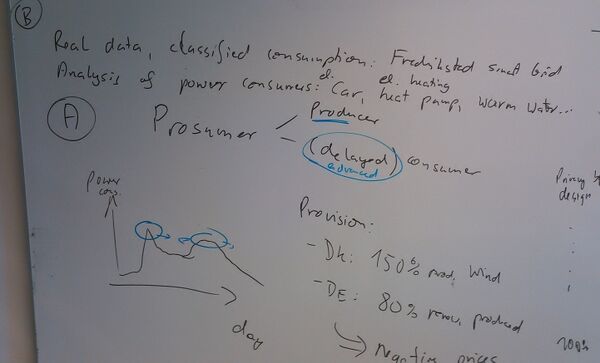 B
Real data, classified consumption: Fredrikstad smart Grid
Analysis of power consumers: el. Car, heat pump, el. heating, warm water...
A
Prosumer
Producer
(delayed) consumer
advanced
Power
cons.
day
Privacy by
design
Provision:
- DK: 150% prod. Wind
- DE: 80% renew. produced
Negative prices